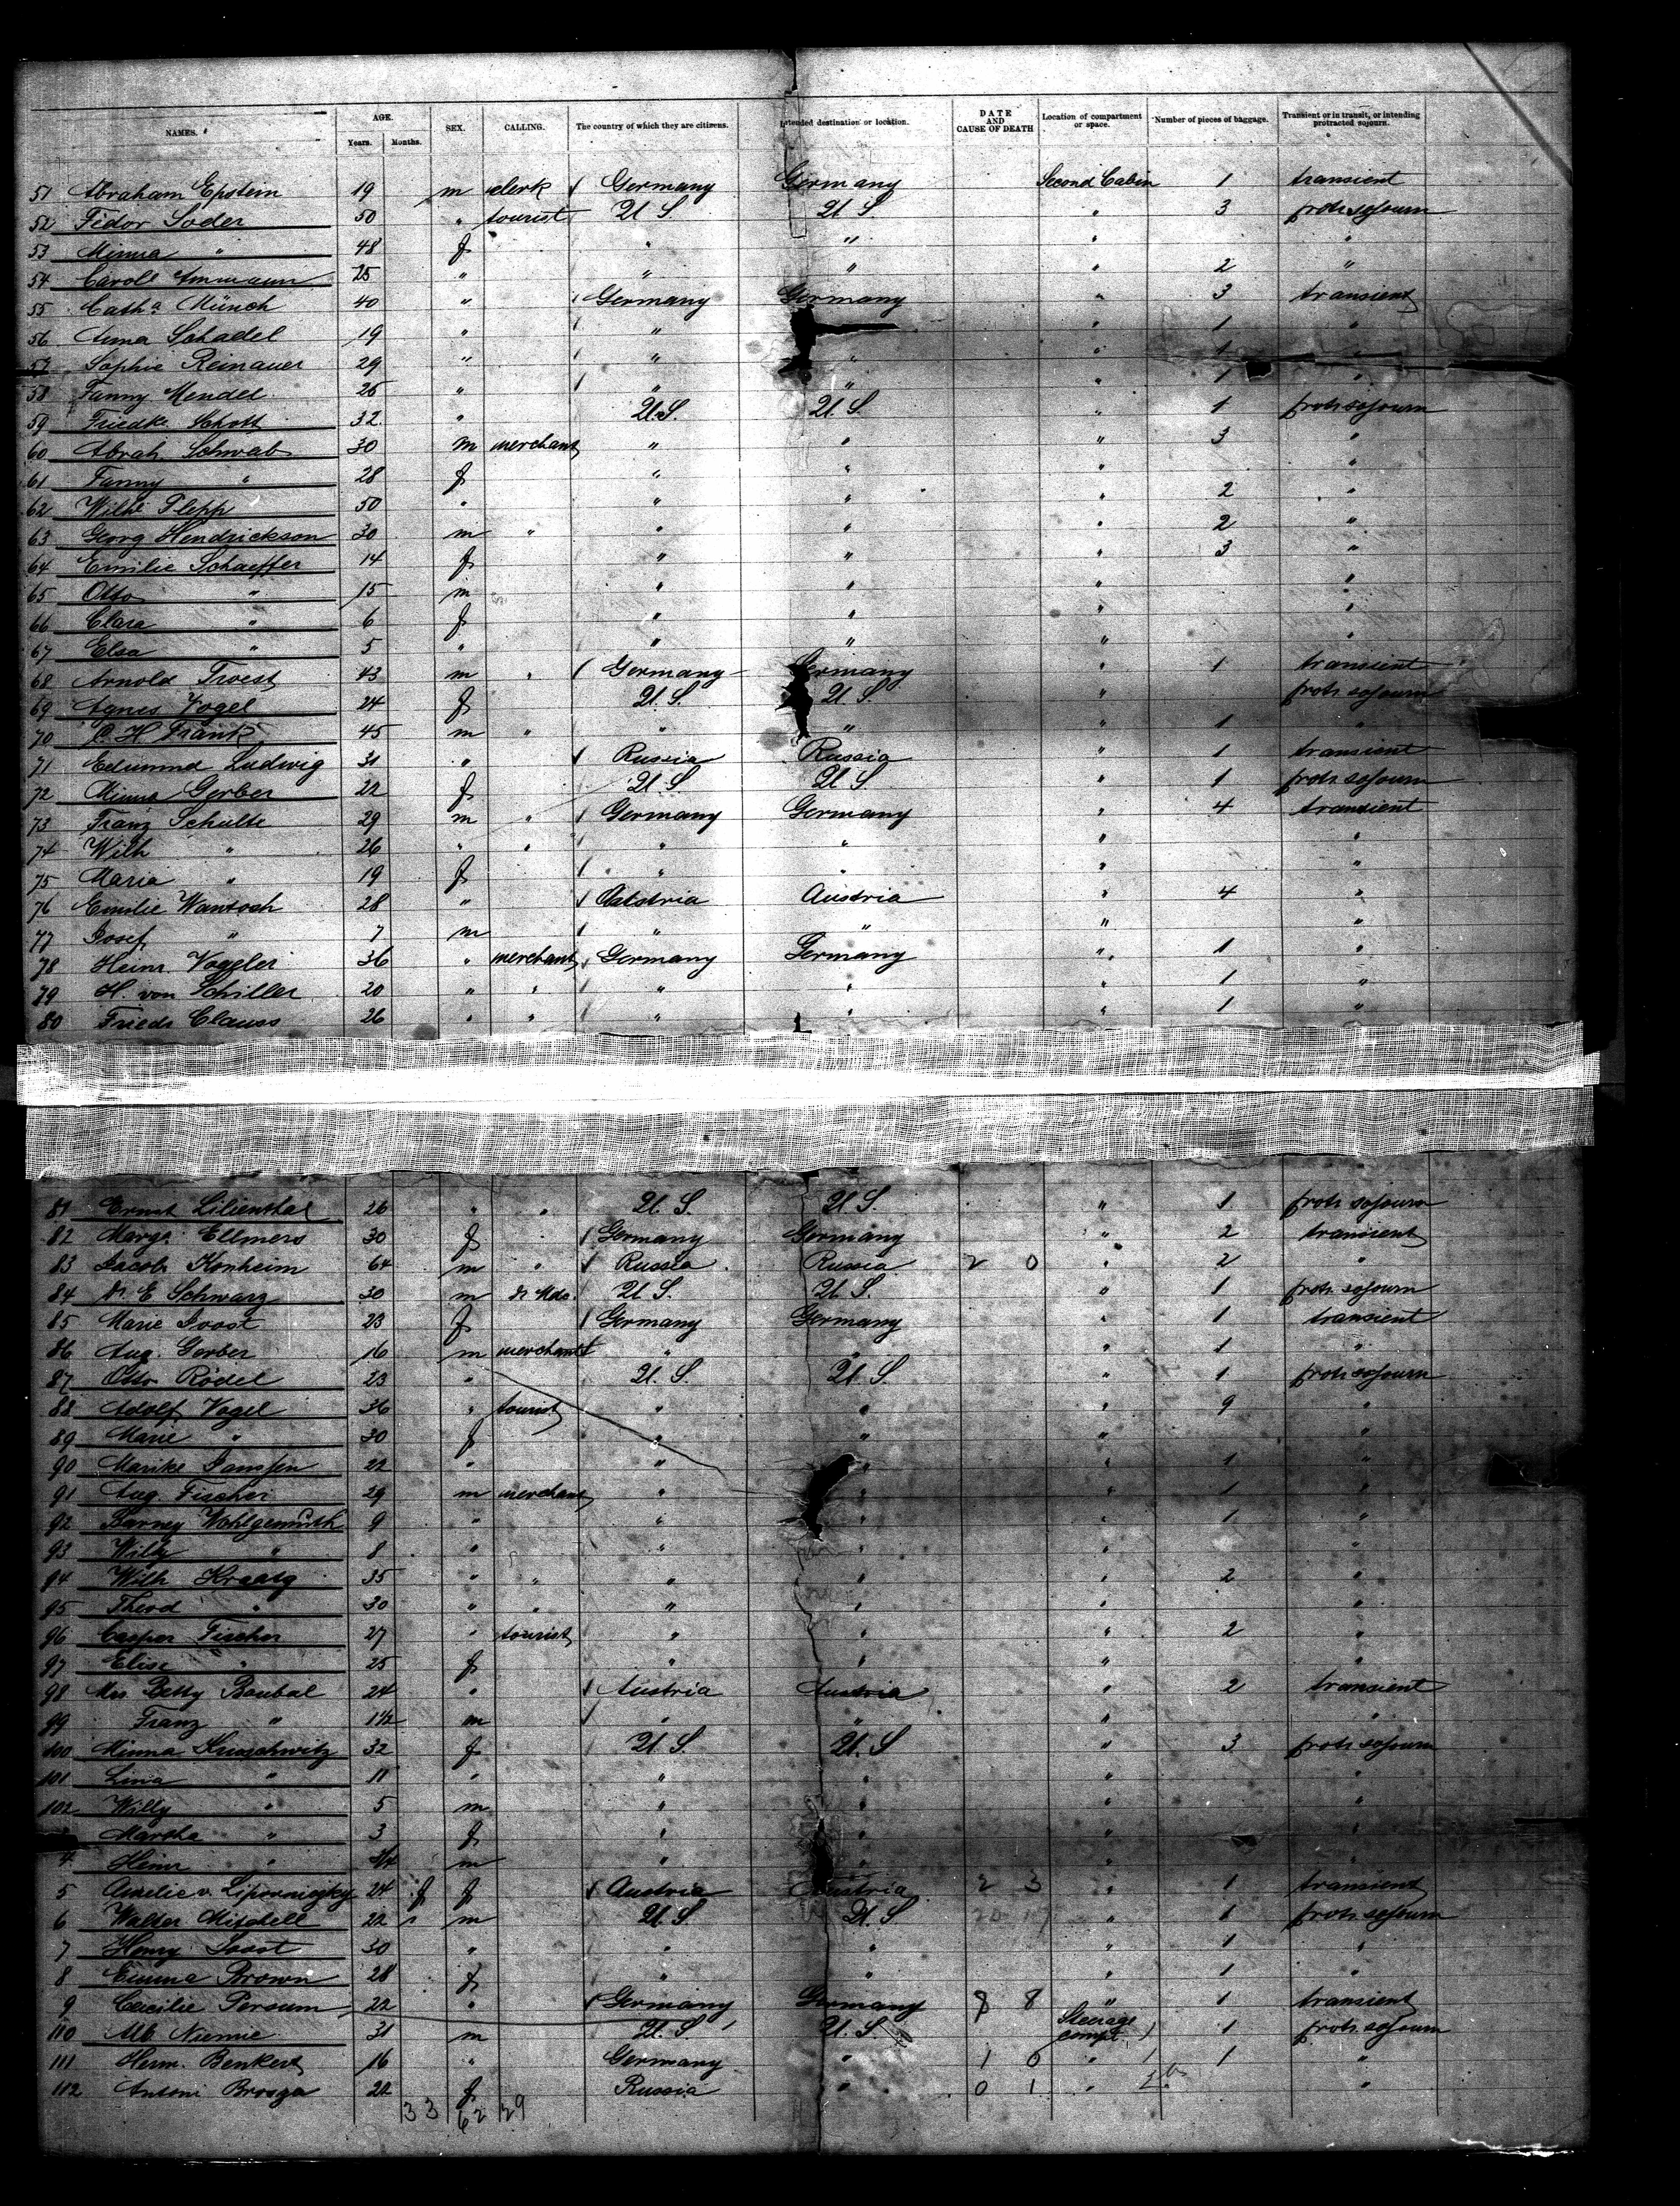 NAMES. AGE. Years. Months. SEX. CALLING. The country of which they are citizens. Intended destination or location. DATE AND CAUSE OF DEATH Location of compartment or space. Number of pieces of baggage. Transient or in transit, or intending protracted sojourn.
51 Abraham Epstein 19 m clerk Germany Germany Second Cabin 1 transient
52 Fedor Soder 50 " tourist U.S. U.S. " 3 protr sojourn
53 Minna " 48 f " " " "
54 Caroll Ammann 25 " " " " 2 "
55 Catha Münch 40 " Germany Germany " 3 transient
56 Anna Schadel 19 " " " 1 "
57 Sophie Reinauer 29 " " " " 1 "
58 Fanny Mendel 25 " " " " 1 "
59 Friedke Schott 32 " U.S. U.S. " 1 protr sojourn
60 Abrah Schwab 30 m merchant " " " 3 "
61 Fanny " 28 f " " " "
62 Wilhe 50 " " " " 2 "
63 Georg Hendrickson 30 m " " " " 2 "
64 Emilie Schaeffer 14 f " " " 3 "
65 Otto " 15 m " " " "
66 Clara " 6 f " " " "
67 Elsa " 5 " " " " "
68 Arnold Troest 43 m " Germany Germany " 1 transient
69 Agnes Vogel 24 f U.S. U.S. " protr sojourn
70 H Frank 45 m " " " " 1 "
71 Edmund Ludwig 31 " Russia Russia " 1 transient
72 Minna Gerber 22 f U.S. U.S. " 1 protr sojourn
73 Franz Schulte 29 m " Germany Germany " 4 transient
74 Wilh " 26 " " " " " "
75 Maria " 19 f " " " "
76 Emilie Wantoch 28 " Austria Austria " 4 "
77 Josef " 7 m " " " "
78 Heinr. Vogeler 36 " merchant Germany Germany " 1 "
79 H. von Schiller 20 " " " " " 1 "
80 Friedr Clauss 26 " " " " " 1 "
81 Ernst Lilienthal 26 " " U.S. U.S. " 1 protr sojourn
82 Marga Ellmers 30 f Germany Germany " 2 transient
83 Jacob Konheim 64 m " Russia Russia 2 0 " 2 "
84 Dr E Schwarz 30 m U.S. U.S. " 1 protr sojourn
85 Marie Joost 23 f Germany Germany " 1 transient
86 Aug. Gerber 16 m merchant " " " 1 "
87 Otto Rödel 23 " U.S. U.S. " 1 protr sojourn
88 Adolf Vogel 36 " tourist " " " 9 "
89 Marie " 30 f " " " "
90 Marike Janssen 22 " " " " 1 "
91 Aug. Fischer 29 m merchant " " " 1 "
92 Barney Wohlgemuth 9 " " " " 1 "
93 Willy " 8 " " " " "
94 Wilh Kraatz 35 " " " " " 2 "
95 Theod " 30 " " " " " "
96 Casper Fischer 27 " tourist " " " 2 "
97 Elise " 25 f " " " "
98 Mrs Betty Boubal 24 " Austria Austria " 2 transient
99 Franz " 1½ m " " " "
100 Minna Kruschwitz 32 f U.S. U.S. " 3 protr sojourn
101 Lina " 11 " " " " "
102 Willy " 5 m " " " "
Martha " 3 f " " " "
4 Heinr " 3/4 m " " " "
5 Amelie v. 24 f f Austria Austria 2 3 " 1 transient
6 Walter Mitchell 22 m U.S. U.S. " 1 protr sojourn
7 Henry Joost 30 " " " " 1 "
8 Emma Brown 28 f " " " 1 "
9 Caecilie Persum 22 " Germany Germany 8 8 " 1 transient
110 Alb Niemie 31 m U.S. U.S. Steerage compt. 1 1 protr sojourn
111 Herm. Benkert 16 " Germany " 1 0 " 1 1 "
112 Antoni Brosga 22 f Russia " 0 1 " "
33 62 29